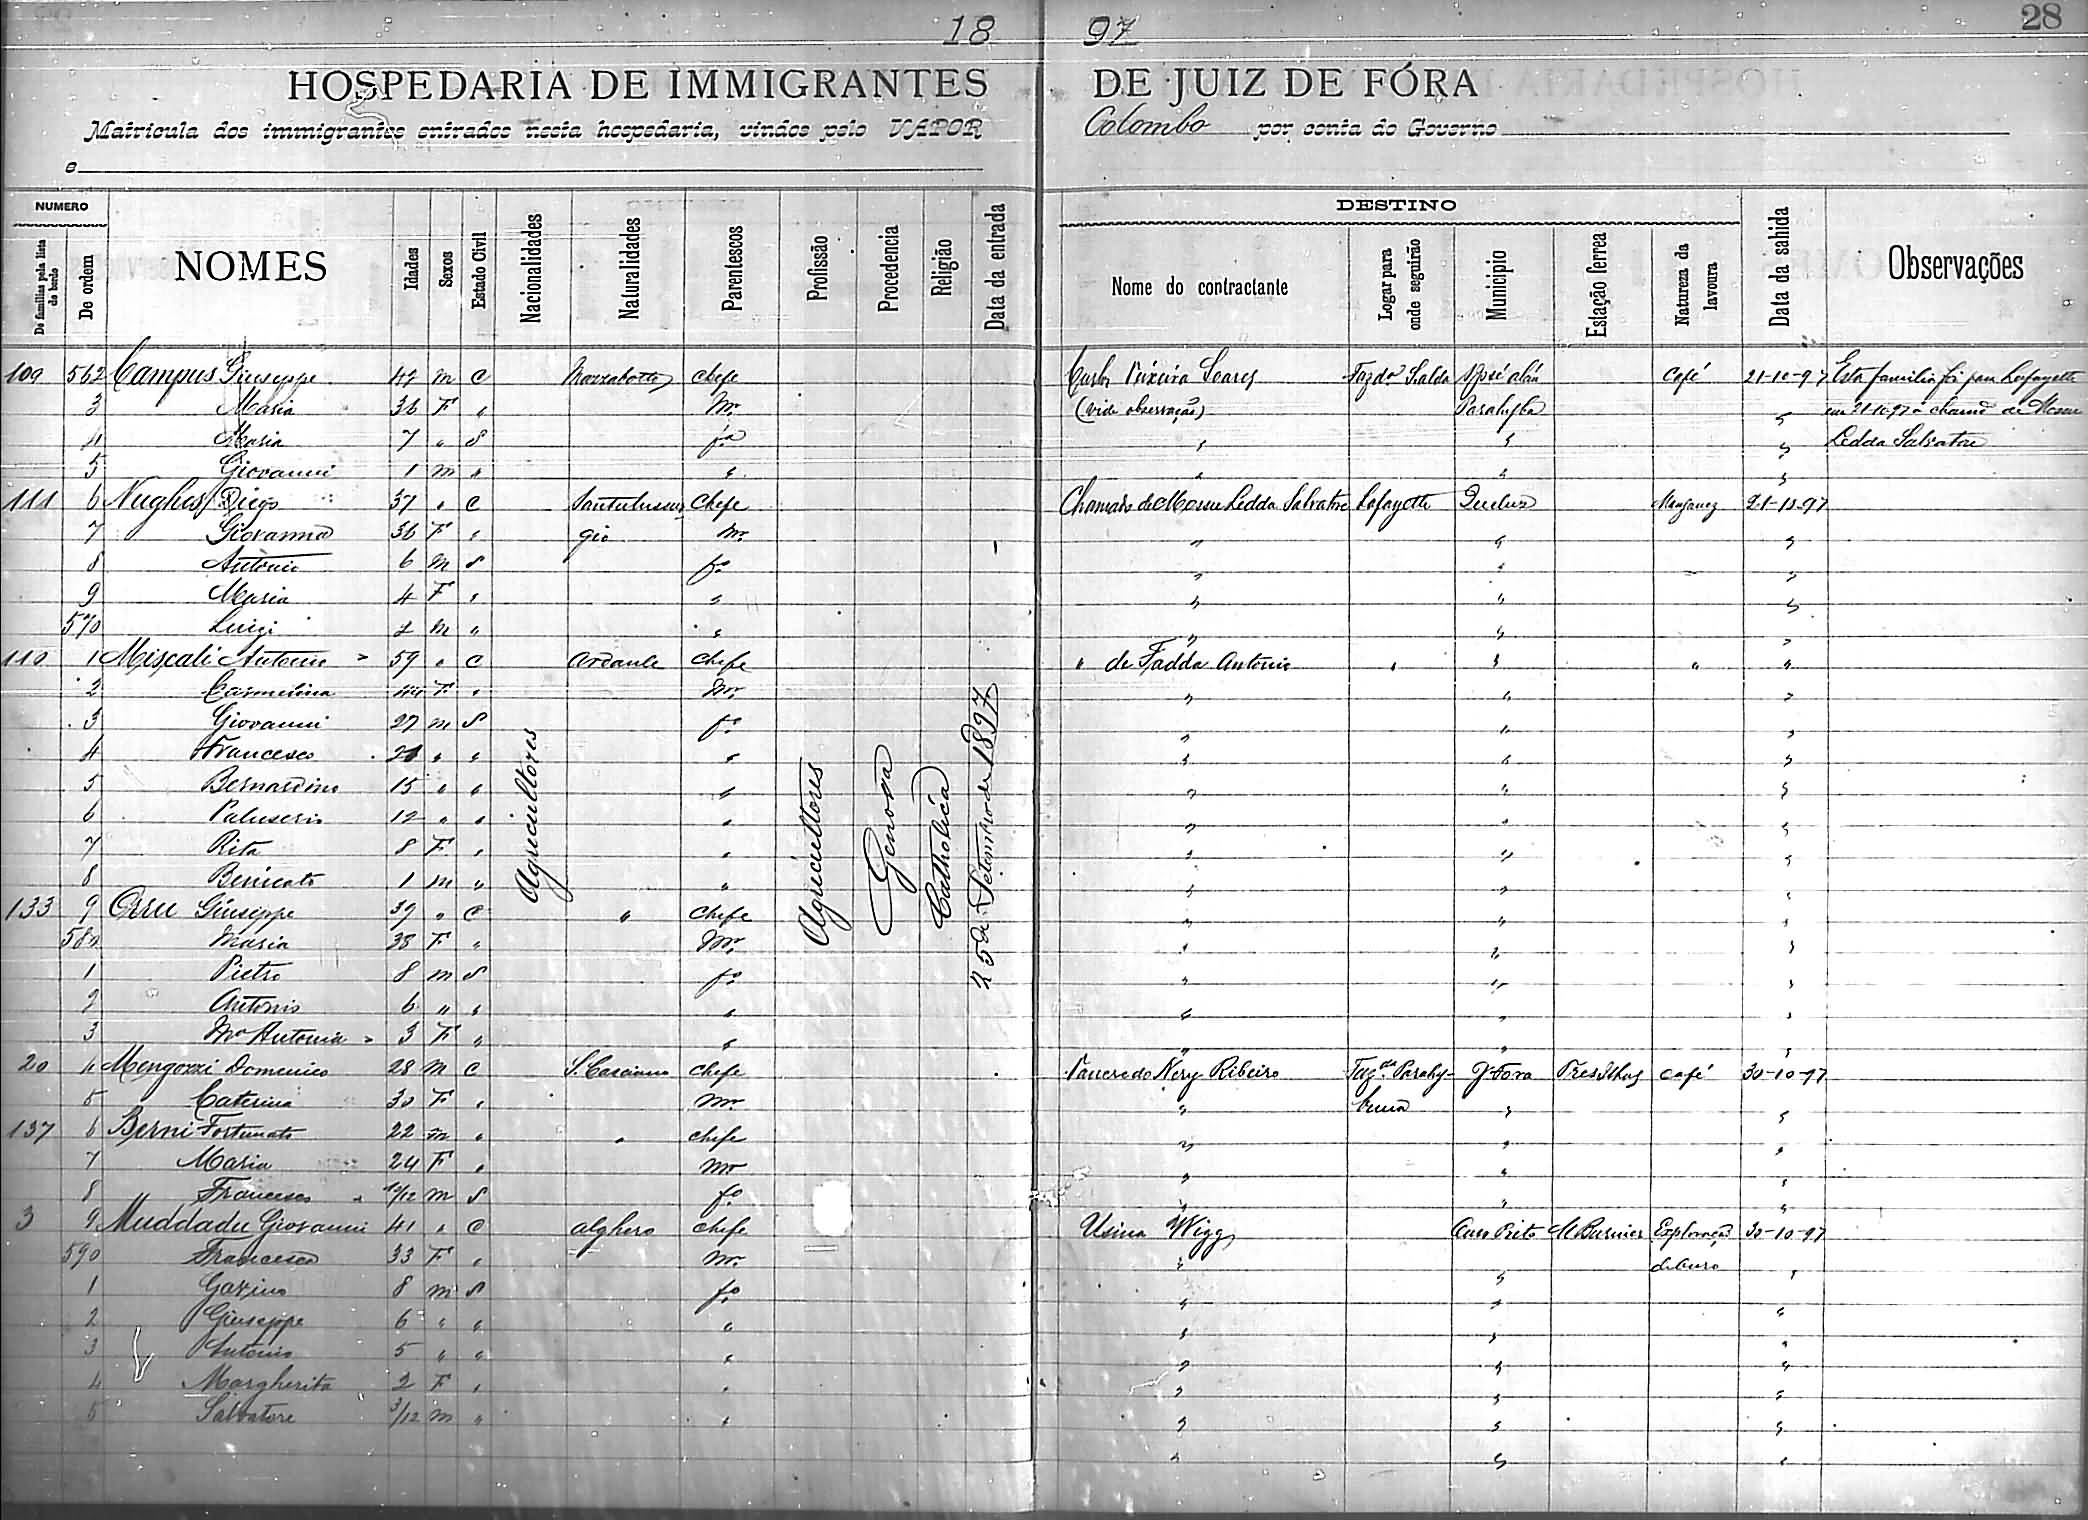 18 97
28
HOSPEDARIA DE IMMIGRANTES DE JUIZ DE FÓRA
Matricula dos immigrantes entrados nesta hospedaria, vindos pelo VAPOR Colombo por conta do Governo
e
NUMERO DESTINO
De familias pela lista de bordo De ordem NOMES Idades Sexos Estado Civil Nacionalidades Naturalidades Parentescos Profissão Procedencia Religião Data da entrada Nome do contractante Logar para onde seguirão Municipio Estação ferrea Natureza da lavoura Data da sahida Observações
109 562 Campus Giuseppe 42 m C chefe Carlos Soares José Café 21-10-97 Esta familia foi para Lafayette
3 Maria 36 F " Mr. (vide observação) Parahyba " em 21-10-97 a de
4 Maria 7 " S fa " " " Ledda Salvatore
5 Giovanni 1 m " " " " "
111 6 Nughes Diego 37 " C Chefe Chamado de Ledda Salvatore Lafayette Queluz Manganez 21-10-97
7 Giovanna 36 F " gio Mr. " " "
8 Antonio 6 m S fo " " "
9 Maria 4 F " " " " "
570 Luigi 2 m " " " " "
110 1 Miscali Antonio 59 " C Ardaule Chefe " de Fadda Antonio " " " "
2 Carmelina 44 F " Mr. " " "
3 Giovanni 27 m S fo " " "
4 Francesco 21 " " " " " "
5 Bernardino 15 " " " " " "
6 12 " " " " " "
7 Rita 8 F " " " " "
8 1 m " " " " "
133 9 Orru Giuseppe 39 " C " chefe " " "
580 Maria 38 F " Mr. " " "
1 Pietro 8 m S fo " " "
2 Antonio 6 " " " " " "
3 Ma Antonia 3 F " " " " "
Agricultores Agricultores Genova Catholica 25 de Setembro de 1897
20 4 Mengozzi Domenico 28 m C S. Casciano chefe Tancredo Nery Ribeiro Fazda Parahy- J. Fora Tres Ilhas Café 30-10-97
5 Caterina 30 F " Mr. " buna " "
137 6 Berni Fortunato 22 m " " chefe " " "
7 Maria 24 F " Mr " " "
8 Francesco /12 m S fo " " "
3 9 Muddadu Giovanni 41 " C Alghero chefe Usina Wigg Ouro Preto M Burnier Exploração 30-10-97
590 Francesca 33 F " Mr. " " de Ouro "
1 Gavino 8 m S fo " " "
2 Giuseppe 6 " " " " " "
3 Antonio 5 " " " " " "
4 Margherita 2 F " " " " "
5 Salvatore 3/12 m " " " " "
" " "